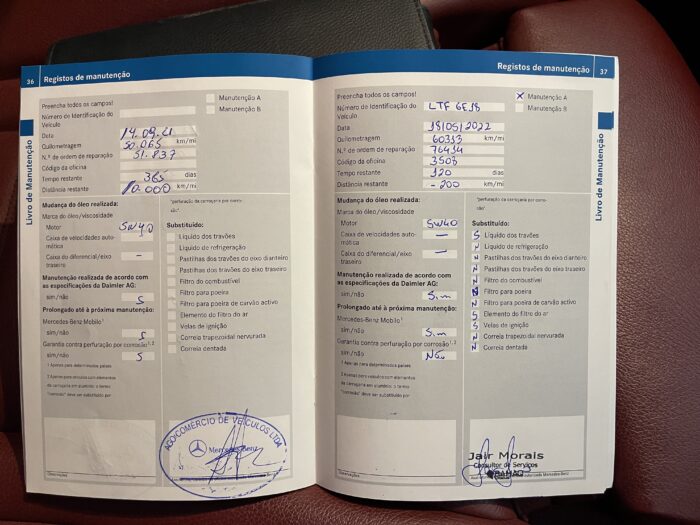 36 Registos de manutenção
Livro de Manutenção
Preencha todos os campos!
Manutenção A
Número de Identificação do Veículo
Manutenção B
Data 14.09.21
Quilometragem 50.065 km/mi
N.º de ordem de reparação 51.837
Código da oficina
Tempo restante 365 dias
Distância restante 10.000 km/mi
Mudança do óleo realizada:
Marca do óleo/viscosidade
Motor 5W40
Caixa de velocidades auto-
mática -
Caixa do diferencial/eixo
traseiro -
Manutenção realizada de acordo com
as especificações da Daimler AG:
sim/não S
Prolongado até à próxima manutenção:
Mercedes-Benz Mobilo¹
sim/não S
Garantia contra perfuração por corrosão¹,²
sim/não S
1 Apenas para determinados países
2 Apenas para veículos com elementos
da carroçaria em alumínio: o termo
"corrosão" deve ser substituído por
"perfuração da carroçaria por corro-
são"
Substituído:
Líquido dos travões
Líquido de refrigeração
Pastilhas dos travões do eixo dianteiro
Pastilhas dos travões do eixo traseiro
Filtro do combustível
Filtro para poeira
Filtro para poeira de carvão activo
Elemento do filtro do ar
Velas de ignição
Correia trapezoidal nervurada
Correia dentada
COMÉRCIO DE VEÍCULOS LTDA
Mercedes-Benz
Observações
Registos de manutenção 37
Livro de Manutenção
Preencha todos os campos!
X Manutenção A
Número de Identificação do
Veículo LTF 6E58
Manutenção B
Data 18/05/2022
Quilometragem 60333 km/mi
N.º de ordem de reparação 76434
Código da oficina 3508
Tempo restante 120 dias
Distância restante - 200 km/mi
Mudança do óleo realizada:
Marca do óleo/viscosidade
Motor 5W40
Caixa de velocidades auto-
mática -
Caixa do diferencial/eixo
traseiro -
Manutenção realizada de acordo com
as especificações da Daimler AG:
sim/não Sim
Prolongado até à próxima manutenção:
Mercedes-Benz Mobilo¹
sim/não Sim
Garantia contra perfuração por corrosão¹,²
sim/não Não
1 Apenas para determinados países
2 Apenas para veículos com elementos
da carroçaria em alumínio: o termo
"corrosão" deve ser substituído por
"perfuração da carroçaria por corro-
são"
Substituído:
S Líquido dos travões
N Líquido de refrigeração
N Pastilhas dos travões do eixo dianteiro
N Pastilhas dos travões do eixo traseiro
N Filtro do combustível
Filtro para poeira
N Filtro para poeira de carvão activo
S Elemento do filtro do ar
S Velas de ignição
N Correia trapezoidal nervurada
N Correia dentada
Jair Morais
Consultor de Serviços
Observações